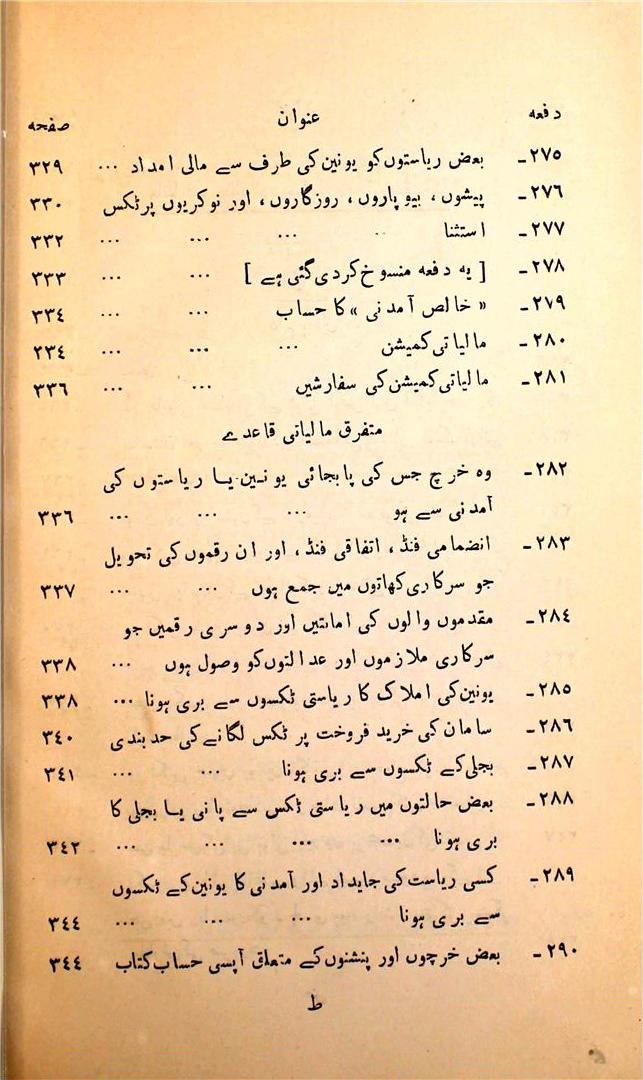 دفعہ عنوان صفحہ
٢٧٥ـ بعض ریاستوں کو یونین کی طرف سے مالی امداد ... ٣٢٩
٢٧٦ـ پیشوں، بیوپاروں، روزگاروں، اور نوکریوں پر ٹکس ٣٣٠
٢٧٧ـ استثنا ... ... ... ٣٣٢
٢٧٨ـ [ یہ دفعہ منسوخ کر دی گئی ہے ] ... ... ٣٣٣
٢٧٩ـ «خالص آمدنی» کا حساب ... ... ٣٣٤
٢٨٠ـ مالیاتی کمیشن ... ... ... ٢٣٤
٢٨١ـ مالیاتی کمیشن کی سفارشیں ... ... ٣٣٦
متفرق مالیاتی قاعدے
٢٨٢ـ وہ خرچ جس کی پابجائی یونین یا ریاستوں کی
آمدنی سے ہو ... ... ... ٣٣٦
٢٨٣ـ انضمامی فنڈ، اتفاقی فنڈ، اور ان رقموں کی تحویل
جو سرکاری کھاتوں میں جمع ہوں ... ... ٣٣٧
٢٨٤ـ مقدموں والوں کی امانتیں اور دوسری رقمیں جو
سرکاری ملازموں اور عدالتوں کو وصول ہوں ... ٣٣٨
٢٨٥ـ یونین کی املاک کا ریاستی ٹکسوں سے بری ہونا ... ٣٣٨
٢٨٦ـ سامان کی خرید فروخت پر ٹکس لگانے کی حدبندی ٣٤٠
٢٨٧ـ بجلی کے ٹکسوں سے بری ہونا ... ... ٣٤١
٢٨٨ـ بعض حالتوں میں ریاستی ٹکس سے پانی یا بجلی کا
بری ہونا ... ... ... ... ٣٤٢
٢٨٩ـ کسی ریاست کی جایداد اور آمدنی کا یونین کے ٹکسوں
سے بری ہونا ... ... ... ٣٤٤
٢٩٠ـ بعض خرچوں اور پنشنوں کے متعلق آپسی حساب کتاب ٣٤٤
ط